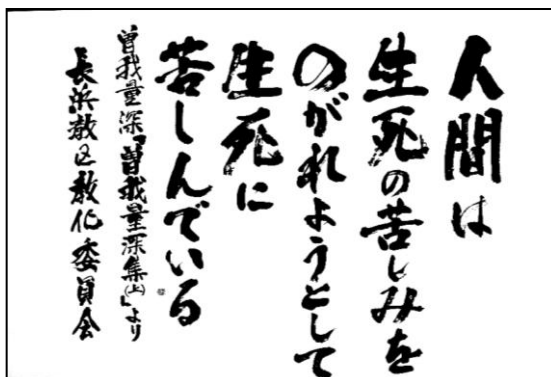 人間は
生死の苦しみを
のがれようとして
生死に
苦しんでいる
曽我量深『曽我量深集(上)』より
長浜教区教化委員会